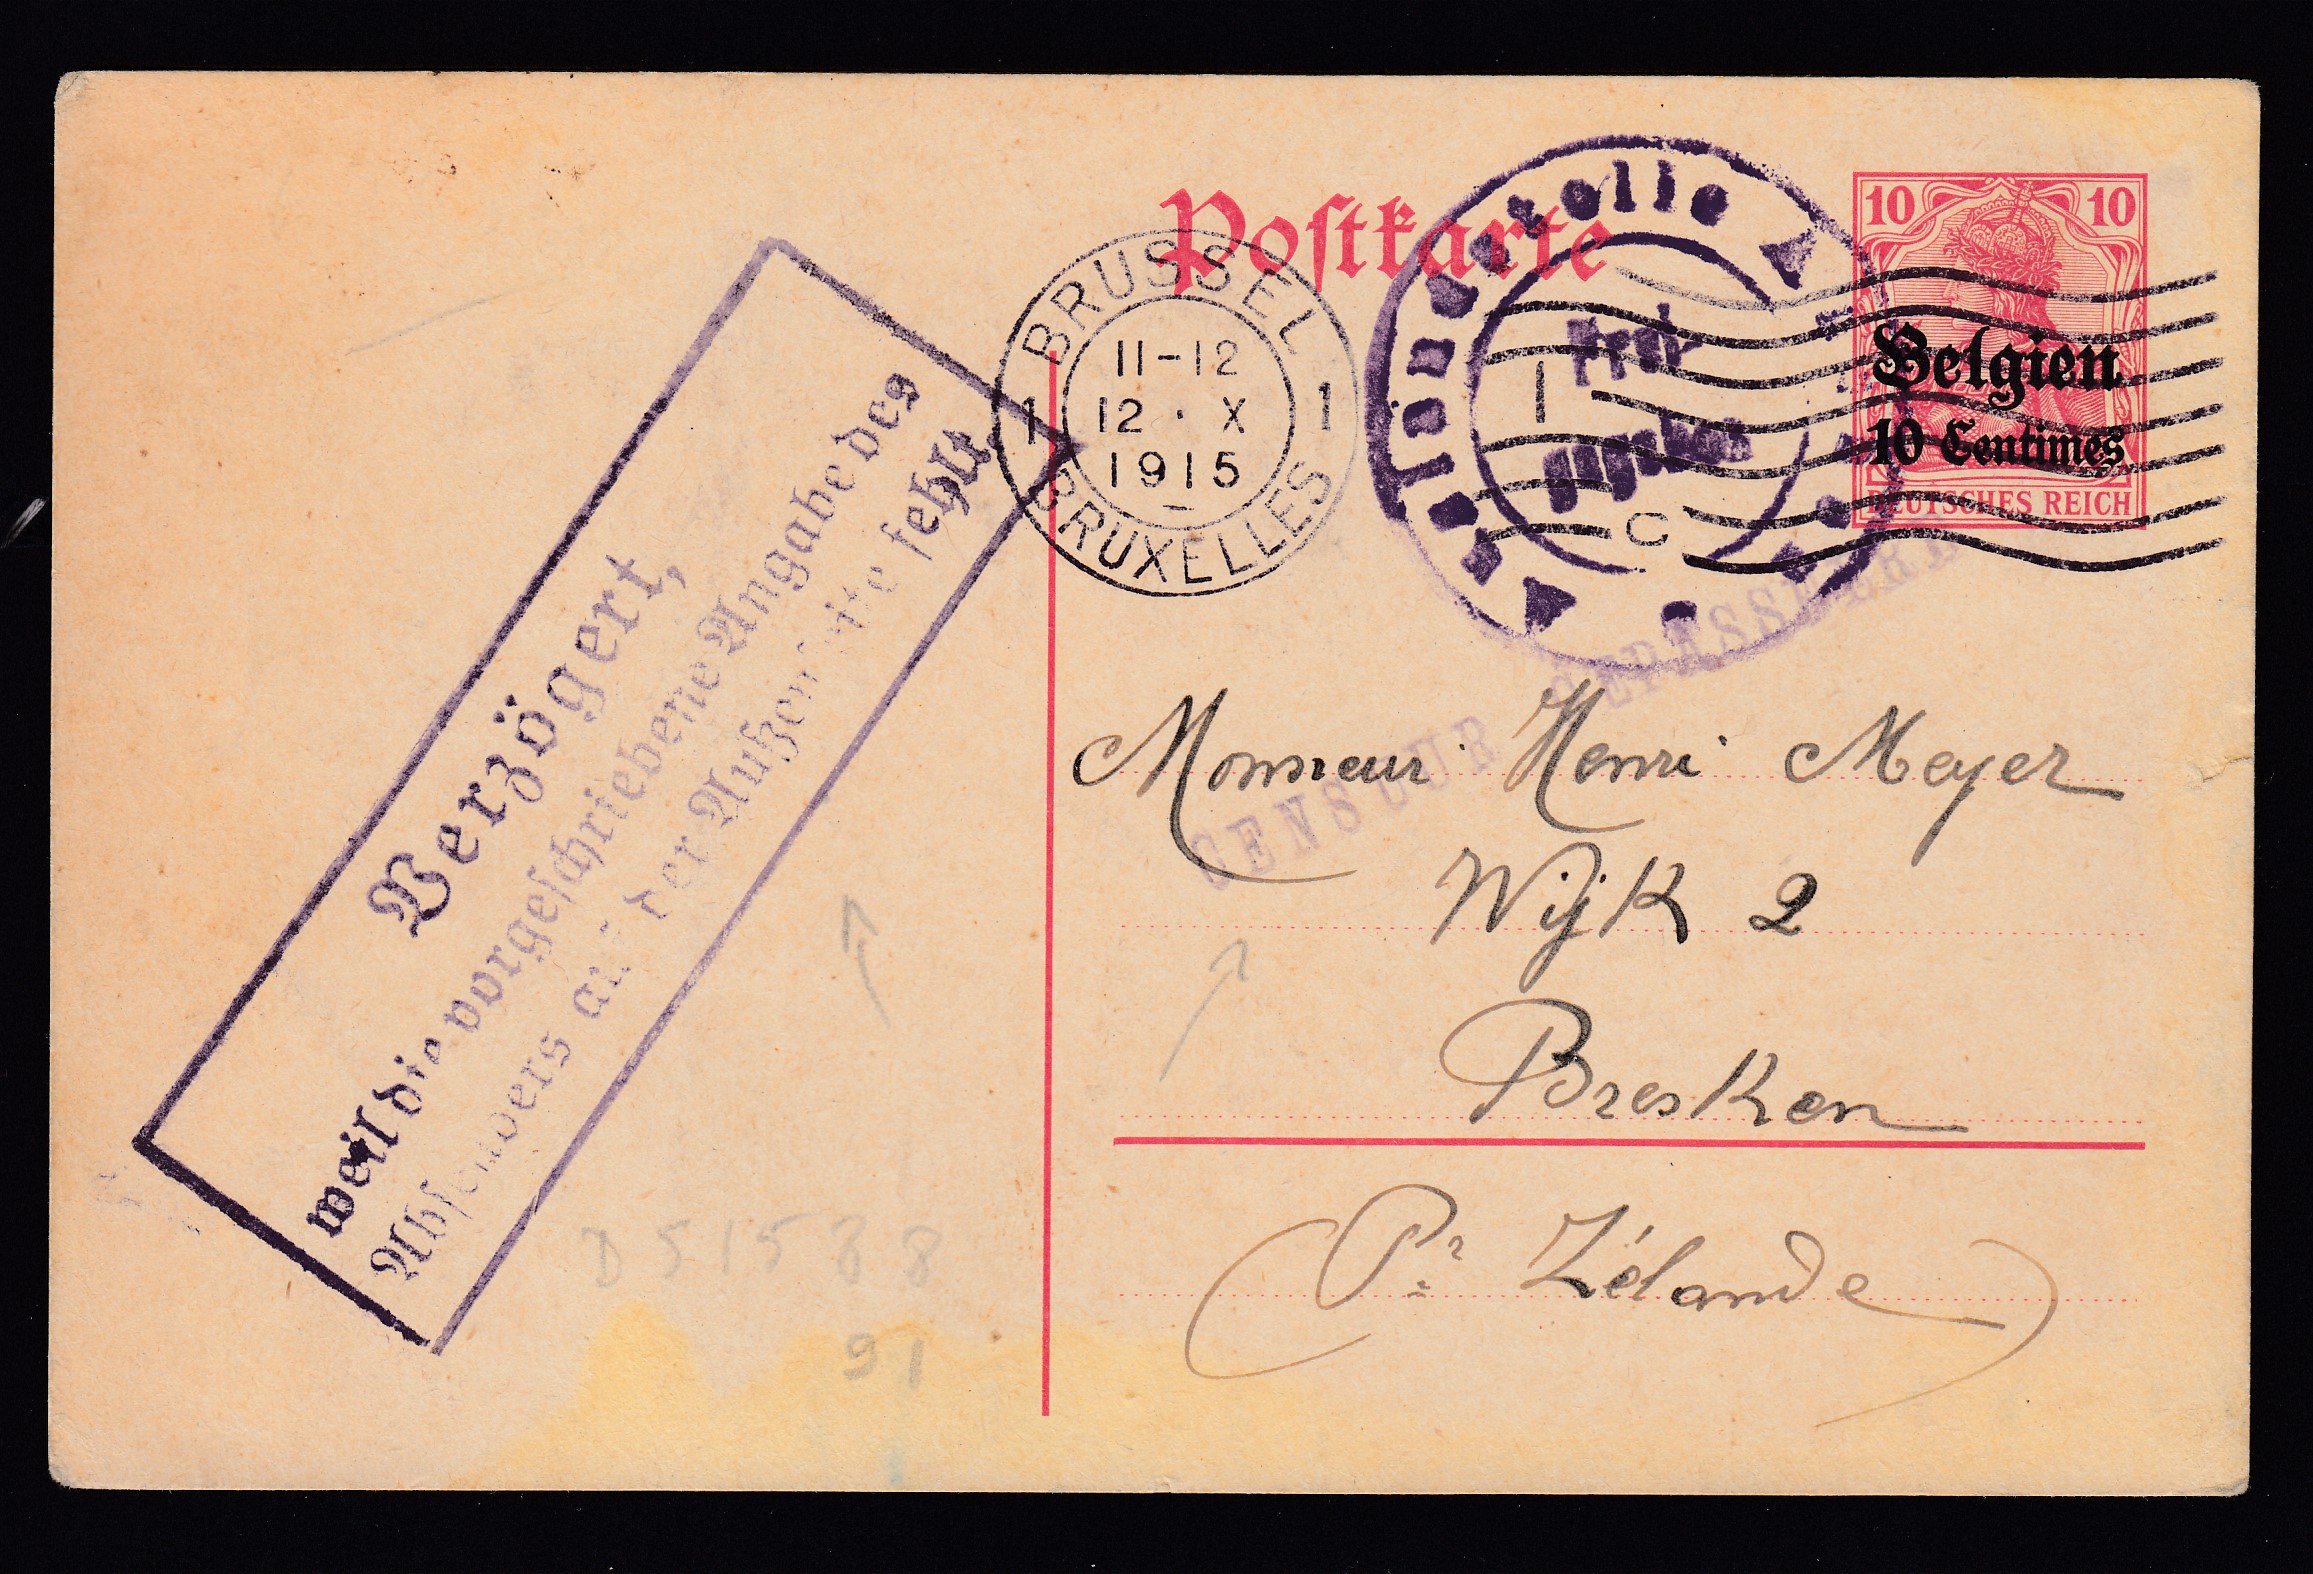 Postkarte
10 10
Belgien
10 Centimes
DEUTSCHES REICH
BRUSSEL
11-12
1 12 · X 1
1915
BRUXELLES
1
C
CENSUUR GEPASSEERD
Verzögert,
weil die vorgeschriebene Angabe des
Absenders auf der Außenseite fehlt.
Monsieur Henri Meyer
Wijk 2
Bresken
(Pr Zélande)
D 51588
91